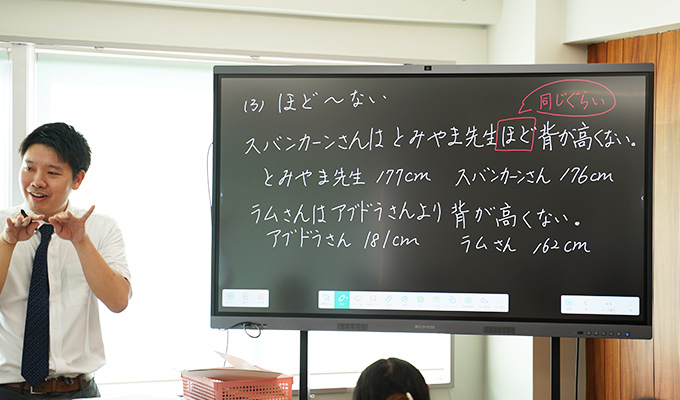 (3) ほど〜ない
同じぐらい
スバンカーンさんは とみやま先生ほど背が高くない。
とみやま先生 177cm スバンカーンさん 176cm
ラムさんはアブドラさんより 背が高くない。
アブドラさん 181cm ラムさん 162cm